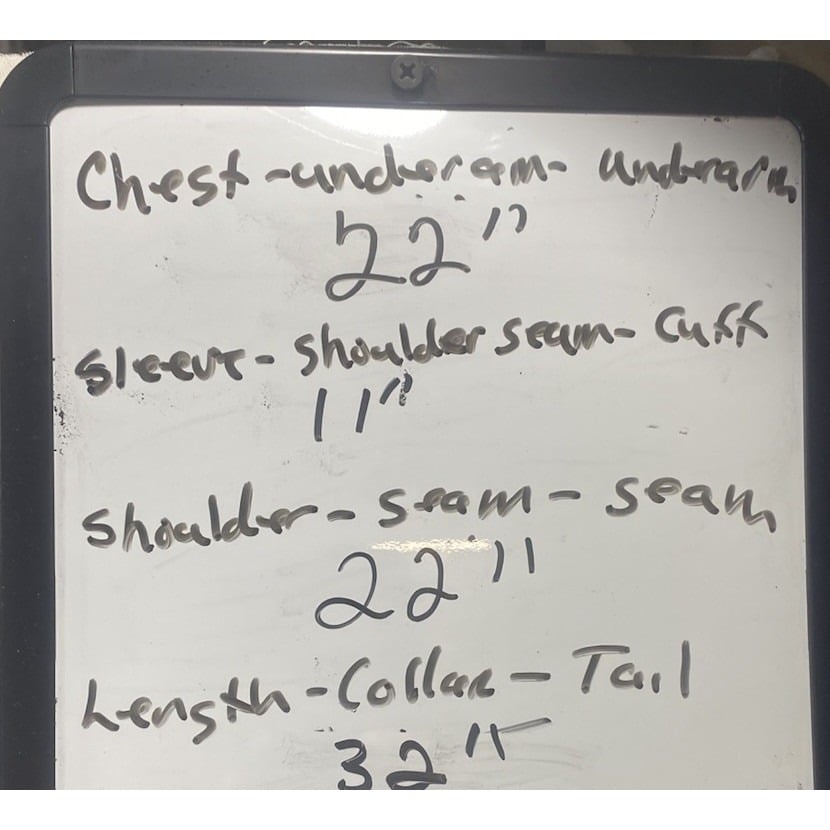 Chest - underarm - underarm
22"
Sleeve - Shoulder seam - Cuff
11"
Shoulder - seam - seam
22"
Length - Collar - Tail
32"